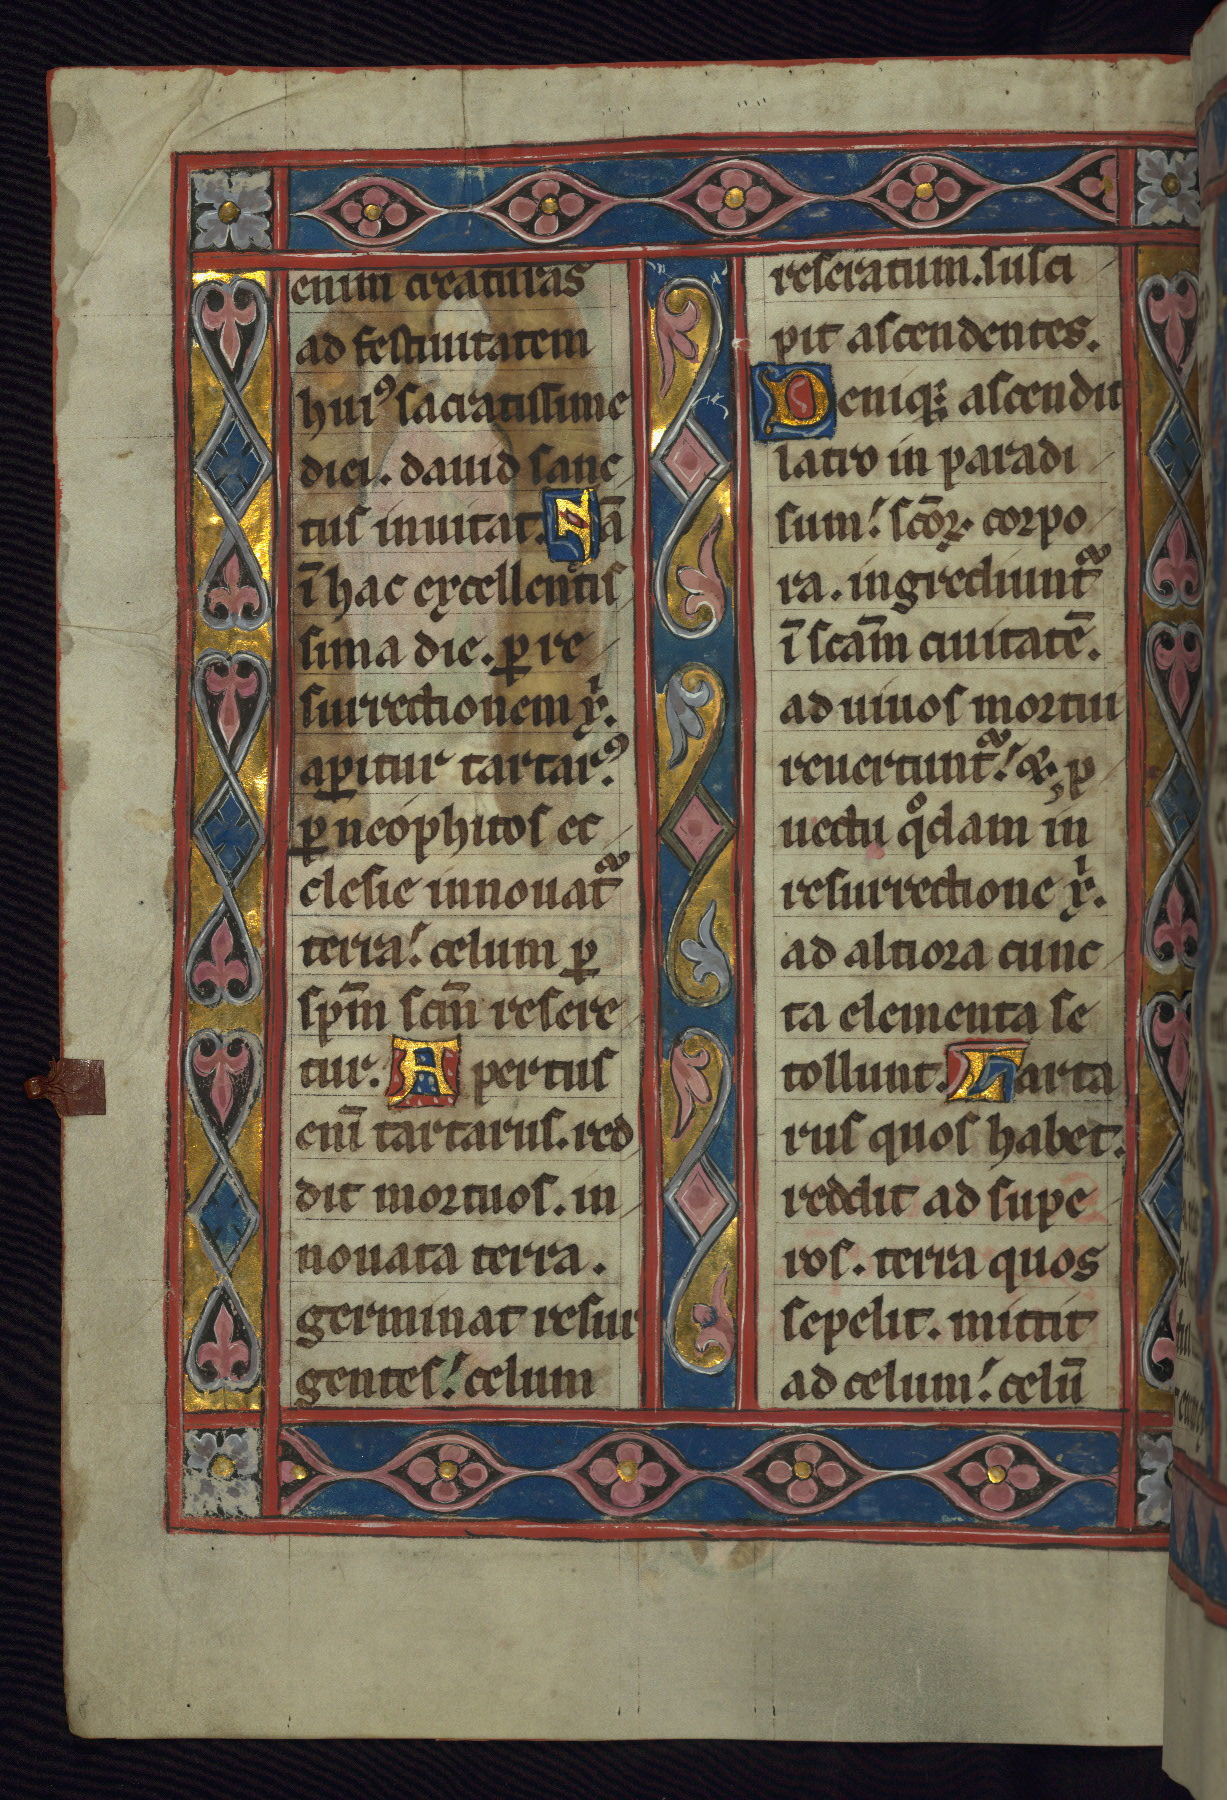 enim creaturas
ad festiuitatem
huiꝰ sacratissime
diei. dauid sanc
tus inuitat. Nā
ī hac excellentis
sima die. ꝑ re
surrectionem xp̄i.
aꝑitur tartarꝰ.
ꝑ neophitos ec
clesie innouat᷑
terra. celum ꝑ
sp̄m scm̄ resere
tur. Apertus
enī tartarus. red
dit mortuos. in
nouata terra.
germinat resur
gentes. celum
reseratum. susci
pit ascendentes.
Deniqꝫ ascendit
latro in paradi
sum. sc̄oꝝ corpo
ra. ingrediunt᷑
ī scām ciuitatē.
ad uiuos mortui
reuertunt᷑. &
uectu qᵒdam in
resurrectione xp̄i.
ad altiora cunc
ta elementa se
tollunt. Tarta
rus quos habet.
reddit ad supe
ros. terra quos
sepelit. mittit
ad celum. celū